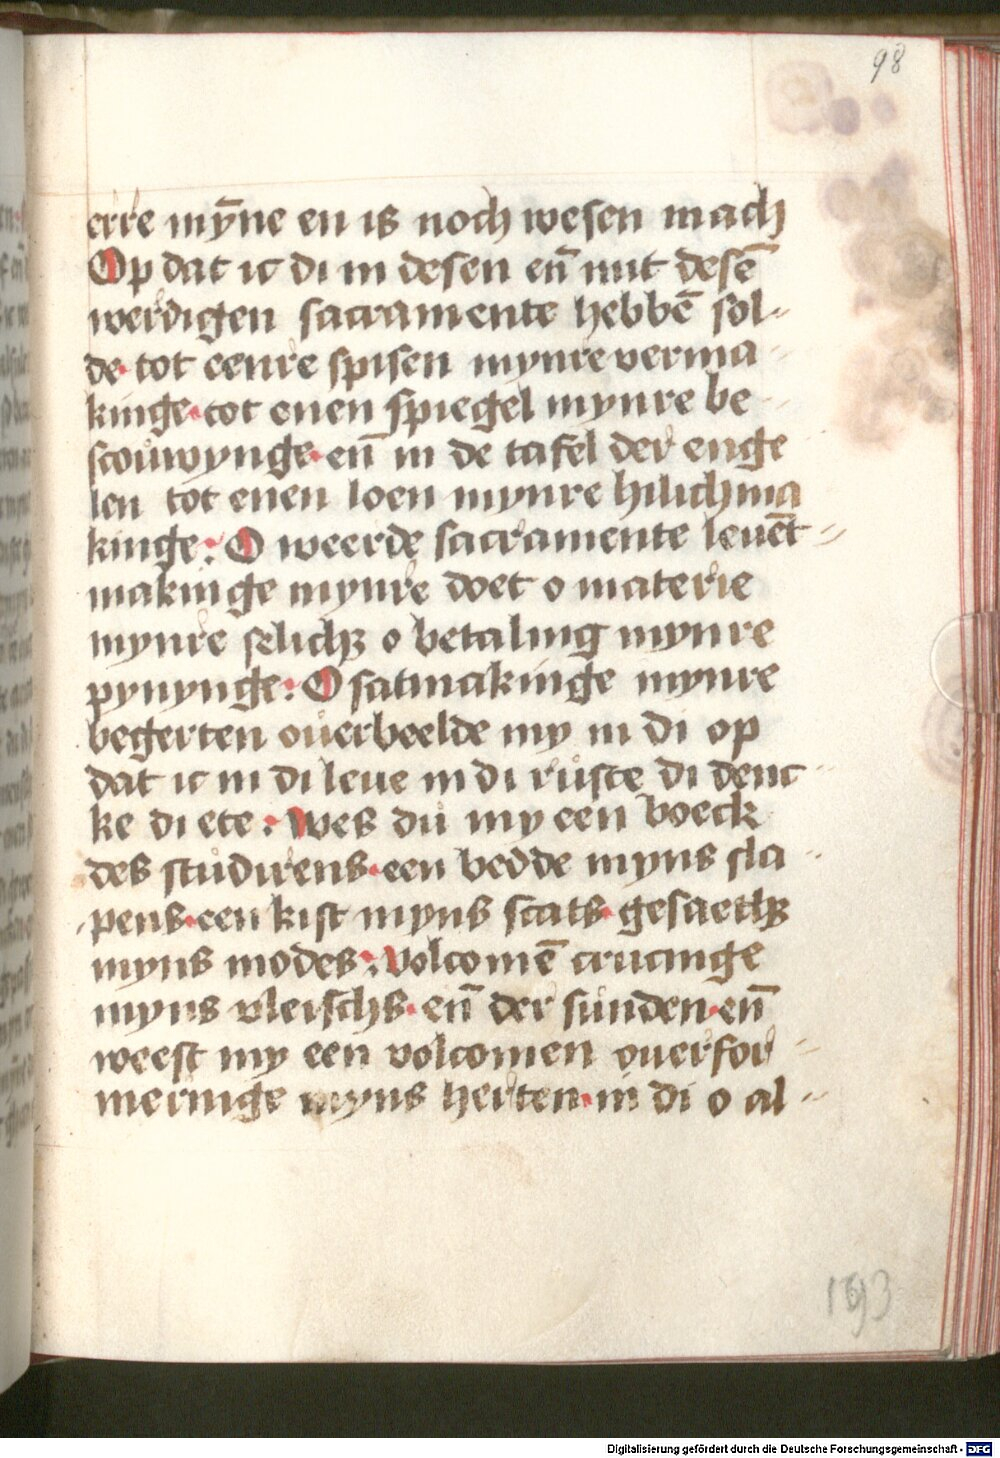 98
erre mȳne en is noch wesen mach
Op dat ic di in desen en̄ mit desē
werdigen sacramente hebbē sol-
de· tot eenre spisen mynre verma-
kinge· tot enen spiegel mynre be-
scouwynge· en̄ in de tafel der enge
len tot enen loen mynre hilichma
kinge: O weerde sacramente leuēt-
makinge mynre doet o materie
mynre o betaling mynre
pynynge: O satmakinge mynre
begerten ouerbeelde my in di op
dat ic in di leue in di ruste di denc-
ke di ete: Wes du my een boeck
des studirens· een bedde myns sla-
pens· een kist myns scats·
myns modes: volcomē crucinge
myns vleischs· en̄ der sunden· en̄
weest my een volcomen ouerfor-
meringe myns herten· in di o al-
193
Digitalisierung gefördert durch die Deutsche Forschungsgemeinschaft - DFG